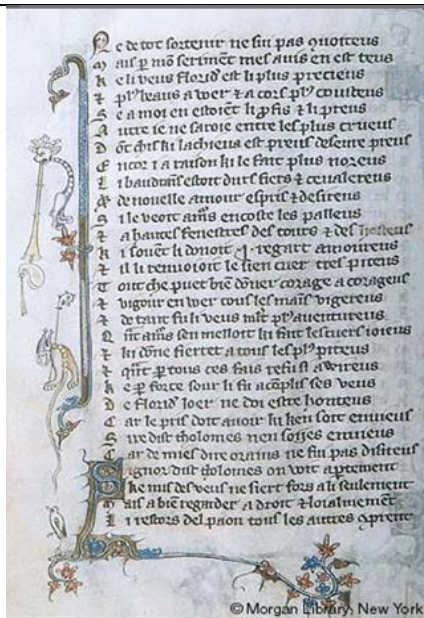 Ne de tot sortenir ne sui pas quoiteus
Mais p mon serement mes avis en est teus
Ke li veus floridꝰ est li plus precieus
⁊ plꝰ beaus a veer ⁊ a cors plꝰ couiteus
Se a moi en estoiēt li pfis ⁊ li preus
Autre ie ne saroie entre les plus crueus
Encor i a raison ki le fait plus noreus
Li baudrais estoit durs fiers ⁊ cevalereus
de novelle amour espris ⁊ desireus
Si leveoit amis encoste les palleus
⁊ a hautes fenestres des tours ⁊ des
ki sovēt li donoit .i. regart amoureus
⁊ il li renvioit le sien cuer tres piteus
Tout che puet biē dōner corage a corageus
⁊ vigour en veer tous les mais vigereus
⁊ de tant fu li veus plꝰ aventureus
⁊ ki dōne fiertet a tous les plꝰ piteus
⁊ qūt p tous ces fais
Ke p force sour li fu acōplis ses veus
De floridꝰ loer ne doi estre honteus
Car le pris doit avoir ki ken soit envieus
Sire dist tholomes nen soijes envieus
Car de mies dire orains ne fui pas disiteus
Signor dist tholomes on voit aptement
Ke mis des veus ne fiert fors a li seulement
Mais a biē regarder a droit ⁊ loialmēt
Li restors del paon tous les autres sprent
© Morgan Library, New York